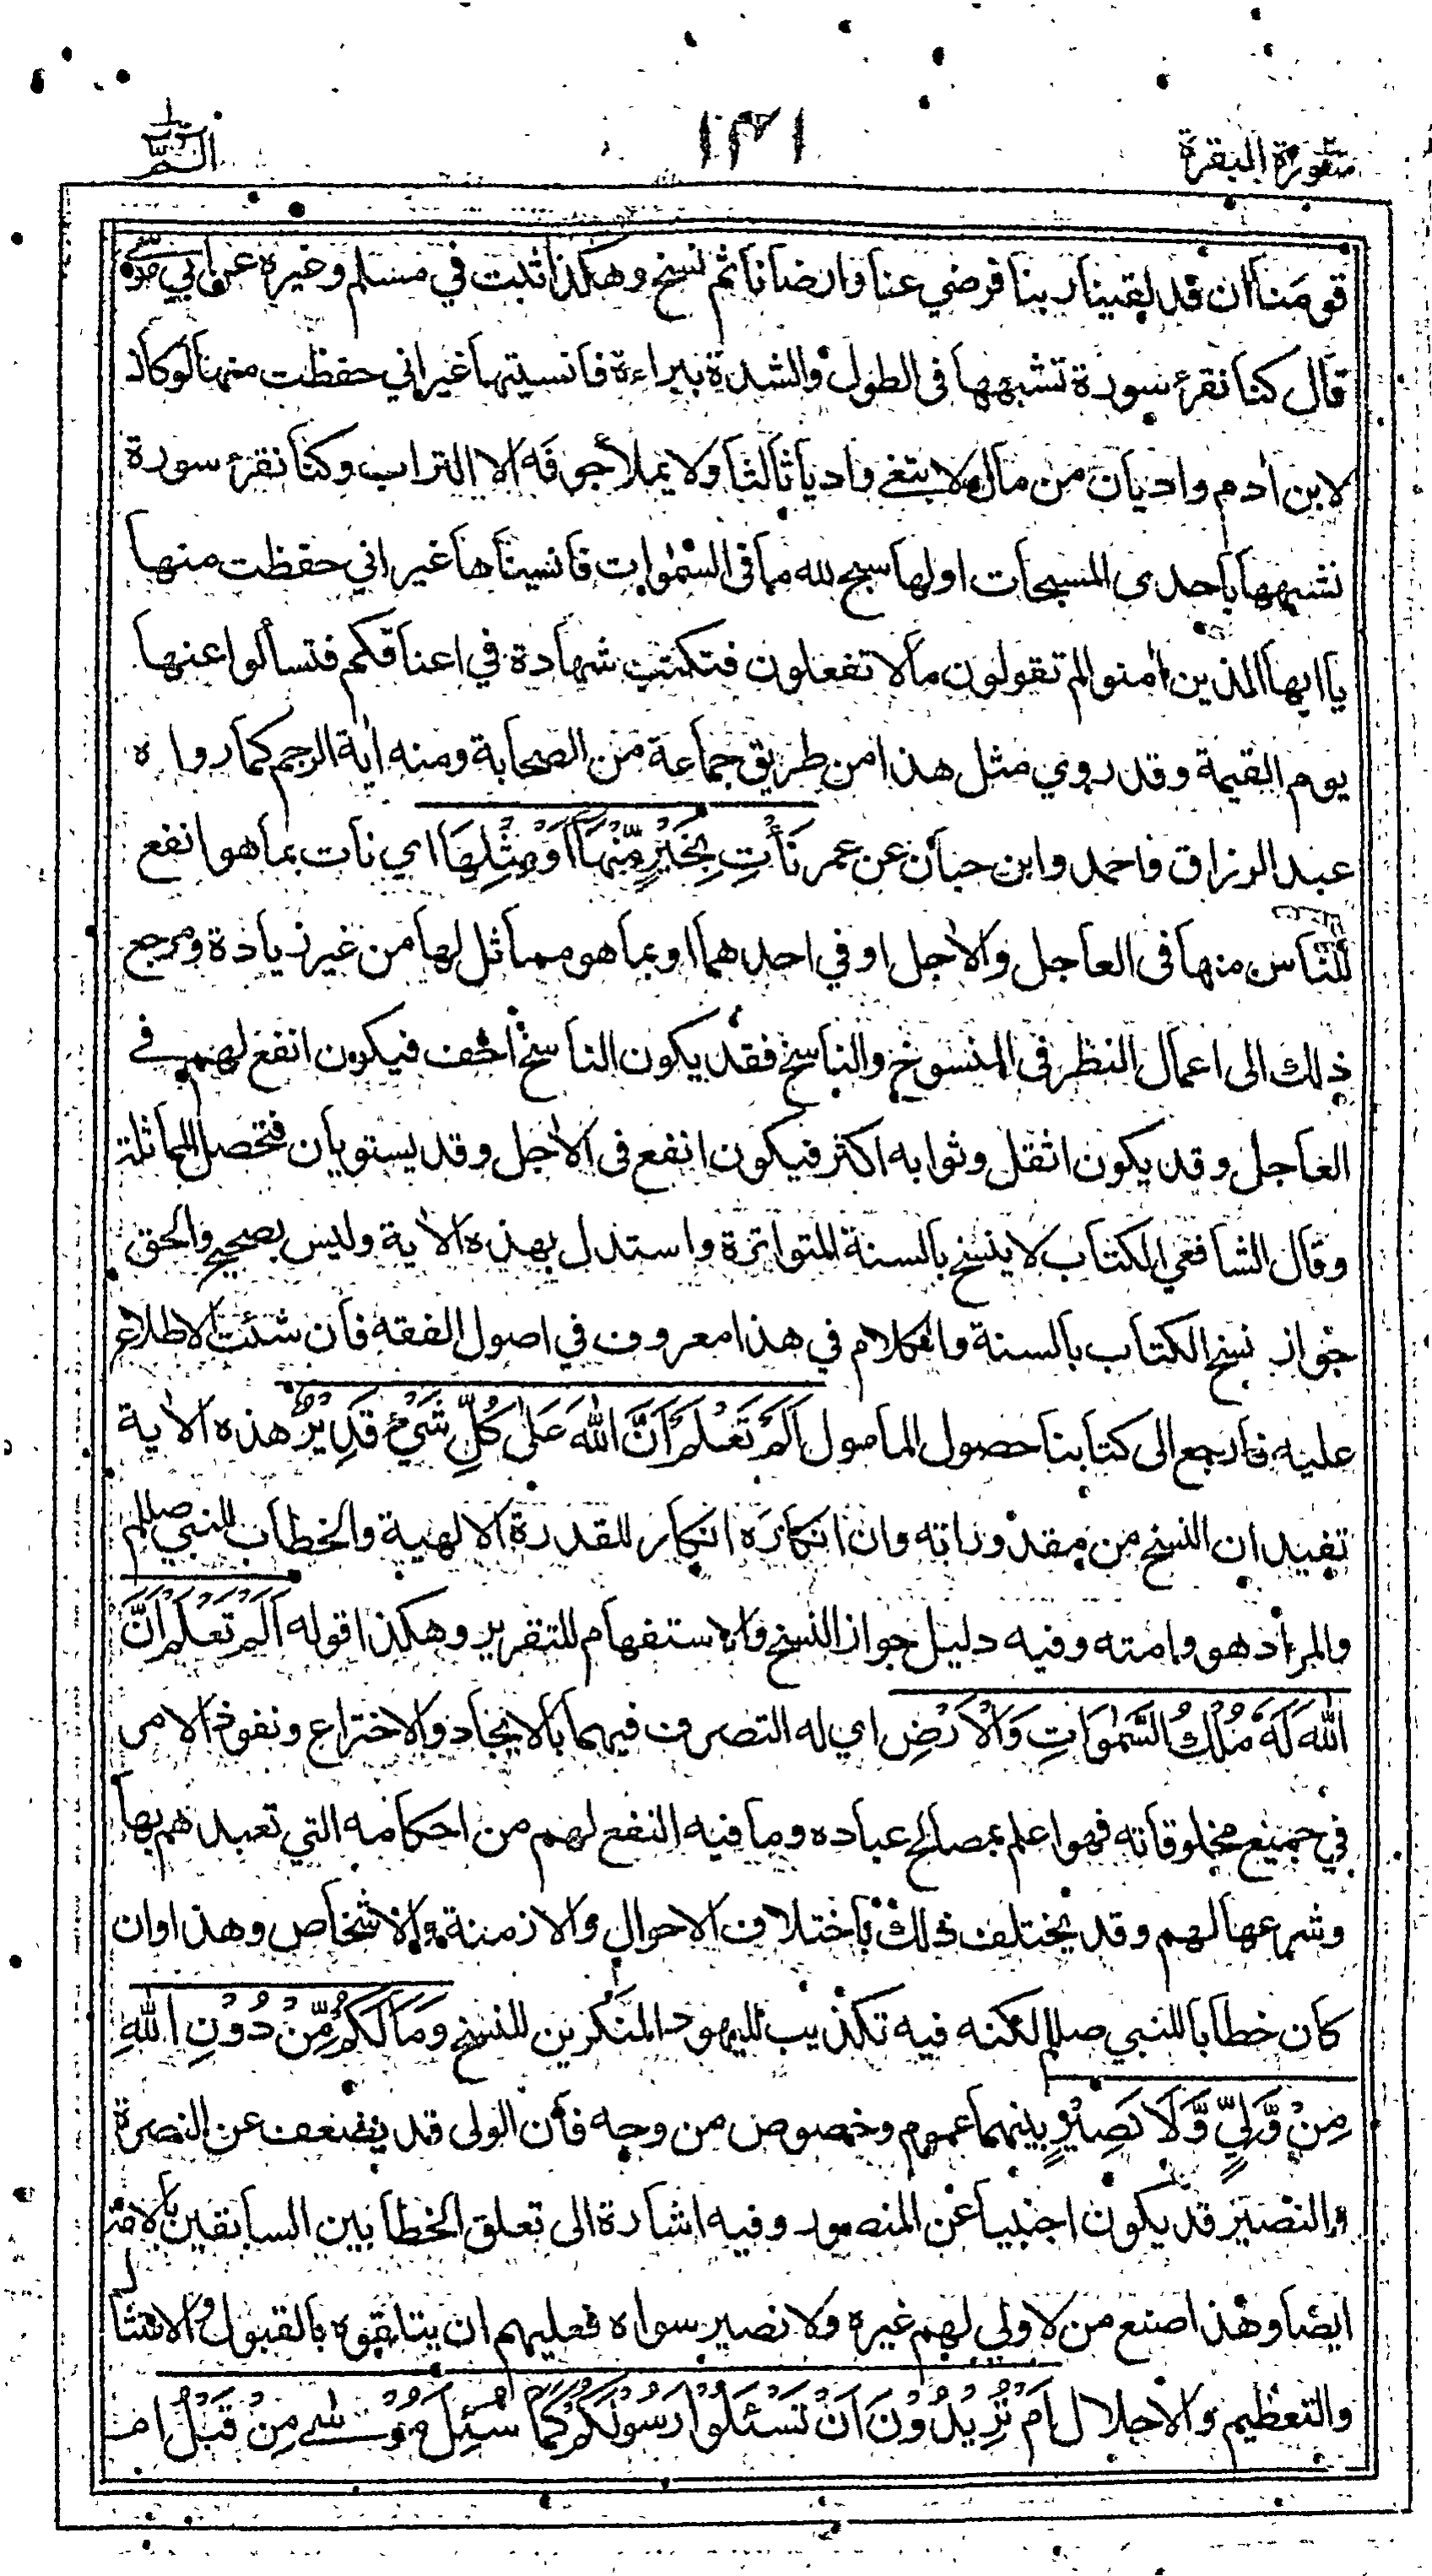 سورة البقرة ١٣١ الم
قومنا ان قد لقينا ربنا فرضي عنا وارضانا ثم نسخ وهكذا ثبت في مسلم وغيره عن ابي موسى
قال كنا نقرء سورة تشبهها فى الطول والشدة ببراءة فانسيتها غير اني حفظت منها لو كان
لابن اٰدم واديان من مال لابتغى واديا ثالثا ولا يملأ جوفه الا التراب وكنا نقرء سورة
نشبهها باحدى المسبحات اولها سبح لله ما فى السمٰوات فانسيناها غير اني حفظت منها
يا ايها الذين اٰمنوا لم تقولون ما لا تفعلون فتكتب شهادة في اعناقكم فتسألوا عنها
يوم القيمة وقد روي مثل هذا من طريق جماعة من الصحابة ومنه اٰية الرجم كما رواه
عبد الرزاق واحمد وابن حبان عن عمر نَأْتِ بِخَيْرٍ مِّنْهَا اَوْ مِثْلِهَا اي نات بما هو انفع
للناس منها فى العاجل والاٰجل او في احدهما او بما هو مماثل لها من غير زيادة ومرجع
ذلك الى اعمال النظر فى المنسوخ والناسخ فقد يكون الناسخ اخف فيكون انفع لهم في
العاجل وقد يكون اثقل وثوابه اكثر فيكون انفع فى الاٰجل وقد يستويان فتحصل المماثلة
وقال الشافعي الكتاب لا ينسخ بالسنة المتواترة واستدل بهذه الاٰية وليس بصحيح والحق
جواز نسخ الكتاب بالسنة والكلام في هذا معروف في اصول الفقه فان شئت الاطلاع
عليه فارجع الى كتابنا حصول المامول اَلَمْ تَعْلَمْ اَنَّ اللّٰهَ عَلٰى كُلِّ شَيْءٍ قَدِيْرٌ هذه الاٰية
تفيد ان النسخ من مقدوراته وان انكاره انكار للقدرة الالهية والخطاب للنبي صللم
والمراد هو وامته وفيه دليل جواز النسخ والاستفهام للتقرير وهكذا قوله اَلَمْ تَعْلَمْ اَنَّ
اللّٰهَ لَهٗ مُلْكُ السَّمٰوَاتِ وَالْاَرْضِ اي له التصرف فيهما بالايجاد والاختراع ونفوذ الامر
في جميع مخلوقاته فهو اعلم بمصالح عباده وما فيه النفع لهم من احكامه التي تعبدهم بها
وشرعها لهم وقد يختلف ذلك باختلاف الاحوال والازمنة والاشخاص وهذا وان
كان خطابا للنبي صللم لكنه فيه تكذيب لليهود المنكرين للنسخ وَمَا لَكُمْ مِّنْ دُوْنِ اللّٰهِ
مِنْ وَّلِيٍّ وَّلَا نَصِيْرٍ بينهما عموم وخصوص من وجه فان الولى قد يضعف عن النصرة
والنصير قد يكون اجنبيا عن المنصور وفيه اشارة الى تعلق الخطابين السابقين بالامة
ايضا وهذا صنع من لا ولي لهم غيره ولا نصير سواه فعليهم ان يتلقوه بالقبول والامتثال
والتعظيم والاجلال اَمْ تُرِيْدُوْنَ اَنْ تَسْئَلُوْا رَسُوْلَكُمْ كَمَا سُئِلَ مُوْسٰى مِنْ قَبْلُ ام